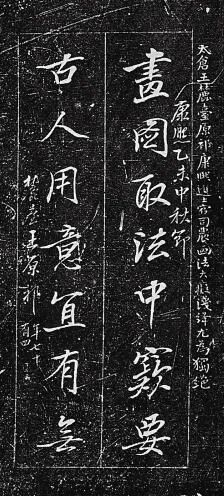 太倉王麓臺原祁康熙進士官司農画法大癡淺絳尤為獨絕
康熙乙未中秋節
畫圖取法中窾要
古人用意宜有無
麓臺王原祁
年七十有四